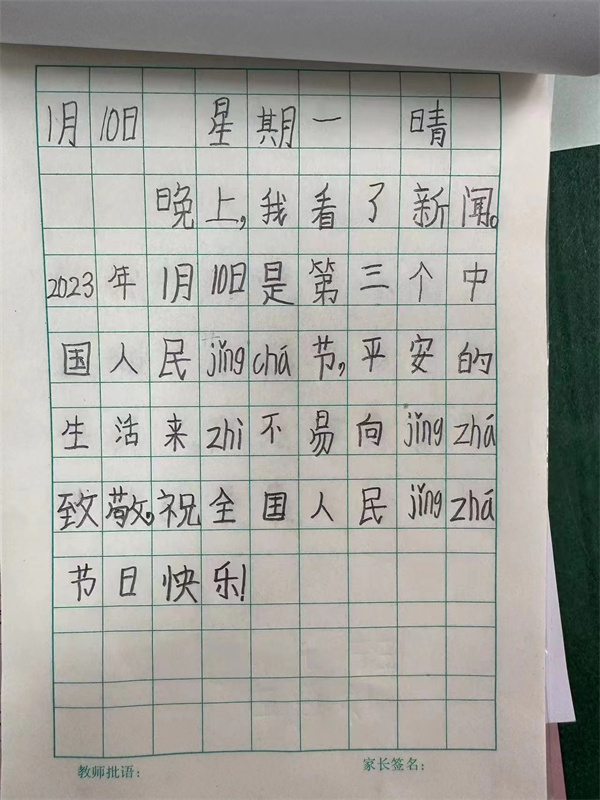 1月10日 星期一 晴
晚上,我看了新闻。
2023年1月10日是第三个中
国人民jǐng chá节,平安的
生活来zhi不易向jǐng zhá
致敬,祝全国人民jǐng zhá
节日快乐!
教师批语: 家长签名: